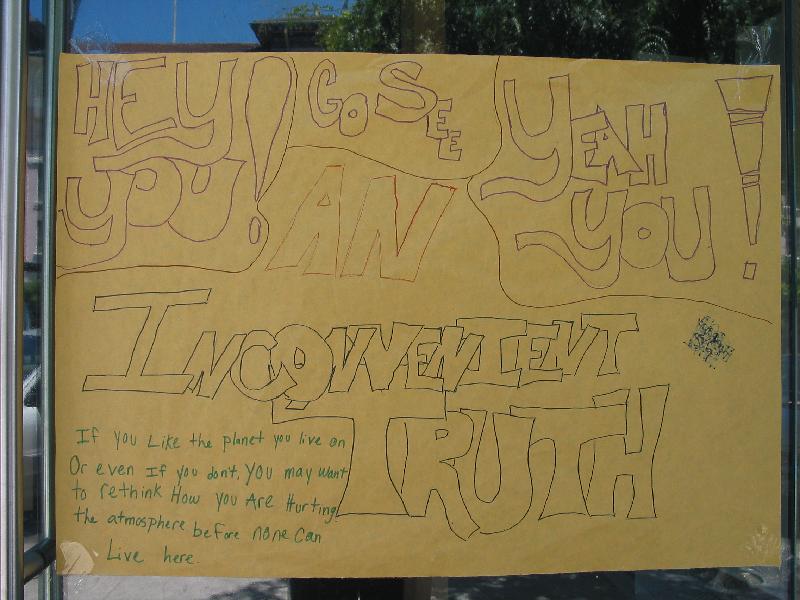 HEY
YOU!
GO SEE
YEAH
YOU!
AN
INCONVENIENT
TRUTH
If you Like the planet you live on
Or even If you don't, You may want
to rethink How you Are Hurting
the atmosphere before none Can
Live here.